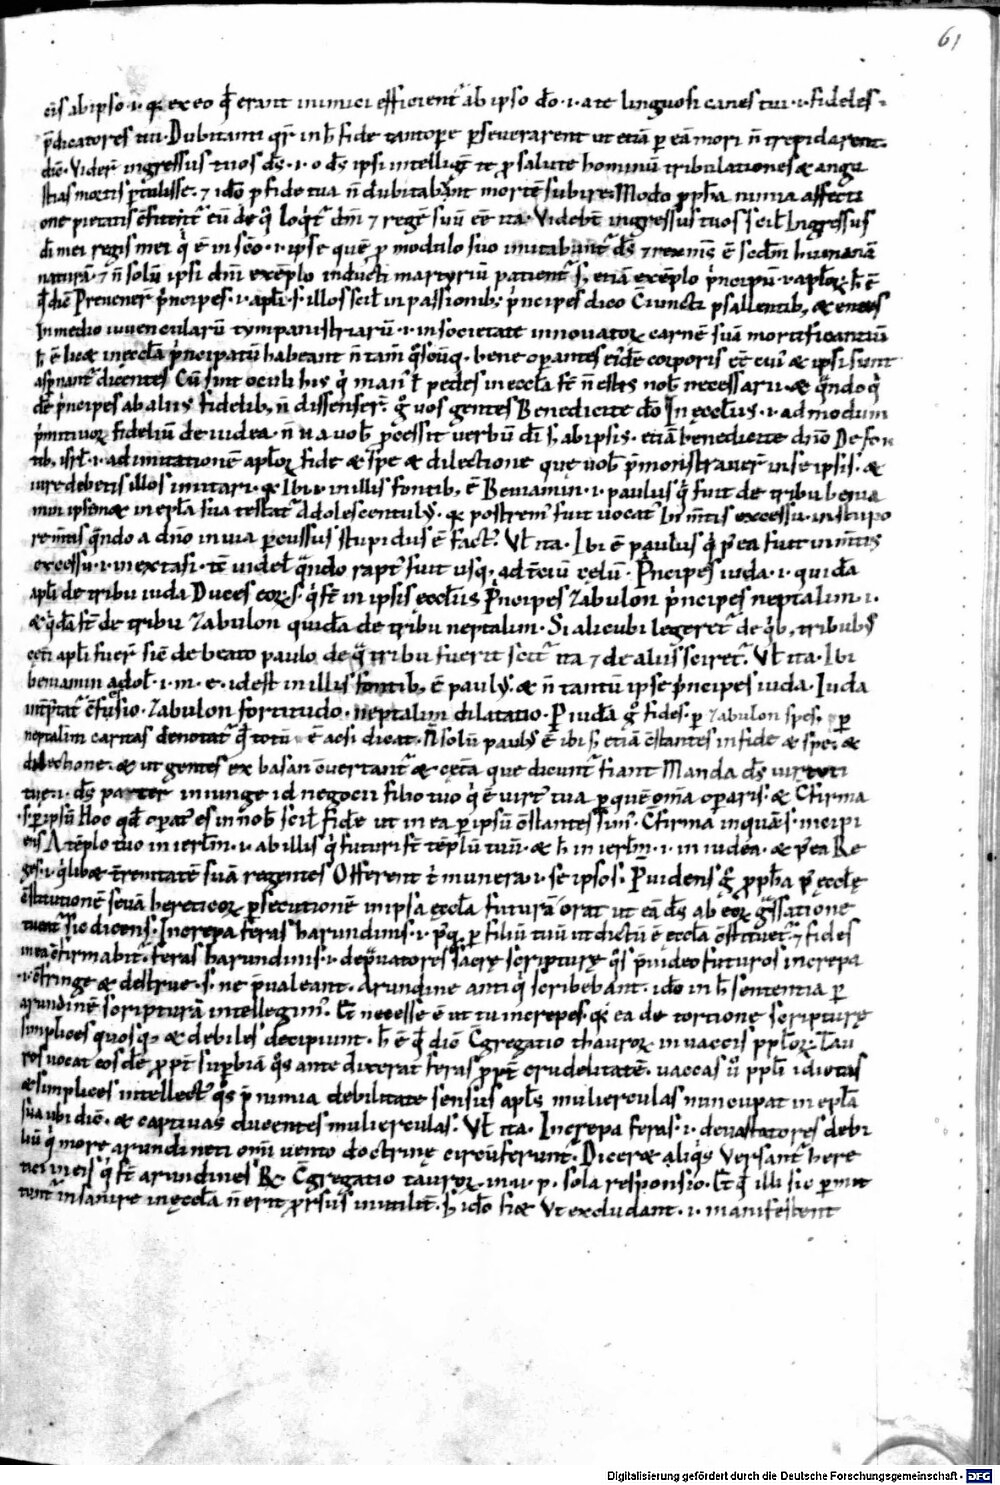 61
eis ab ipso .i. qꝛ ex eo qd̄ erant inimici efficient᷑ ab ipso do .i. a te linguosi canes tui .i. fideles
p̄dicatores tui. Dubitanti qr̄ in h̄ fide tantope ꝑseverarent ut etiā ꝑ eā mori n̄ trepidarent
dic̄. Vider̄ ingressus tuos ds̄ .i. o ds̄ ipsi intelligt̄ te ꝓ salute hominū tribulationes & angu
stias mortis ꝑtulisse. ⁊ ido ꝓ fide tua n̄ dubitabant mortē subire. Modo ꝓph̄a nimia affecti
one pietatis
di mei regis mei q' ē in sc̄o .i. ipse quē ꝓ modulo suo imitabunt᷑ ds̄ ⁊ rex
naturā. ⁊ n̄ solū ipsi dni exēplo inducti martyriū patient᷑ s; etiā exēplo p'ncipū .i. aplor̄. h̄ ē
qd̄ dic̄ Prevener̄ p'ncipes .i. apli. s. illos scil in passionib; p'ncipes dico C̄iuncti psallentib;
In medio iuvencularū tympanistriarū .i. in societate innovator̄ carnē suā mortificantiū
h̄ ē licet in eccl̄a p'ncipatū habeant n̄ tam̄ bene operantes corporis & ipsi sunt
dicentes Cū sint oculi his q' man' ł pedes in eccl̄a st̄ n̄ estis nob̄ necessarii
de p'ncipes ab aliis fidelib; n̄ dissenser̄. g° vos gentes Benedicite do In ęccl̄iis .i. ad modum
p'mitivor̄ fideliū de iudea. p̄cessit verbū di s; ab ipsis. etiā benedicite dn̄o De fon
tib; isrl̄ .i. ad imitationē aplor̄ fide & spe & dilectione que vob̄ p̄monstraver̄ in se ipsis. &
iure debetis illos imitari. qꝛ Ibi .i. in illis fontib; ē Beniamin .i. paulus q' fuit de tribu benia
min ipse in epl̄a sua testat᷑ Adolescentulꝰ. qꝛ postrem' fuit vocat' In m̄tis excessu .i. in stupo
re m̄tis qn̄do a dn̄o in via ꝑcussus stupidus ē fact'. Vl̄ ita. Ibi ē paulus q' p'ea fuit in m̄tis
excessu .i. in extasi. qn̄do rapt' fuit usq; ad t̄ciū cęlū. P'ncipes iuda .i. quidā
apli de tribu iuda Duces eor̄. s. q' st̄ in ipsis eccl̄iis P'ncipes Zabulon p'ncipes neptalim .i.
& q'dā st̄ de tribu Zabulon quidā de tribu neptalim. Si alicubi legeret᷑ de q'b; tribubꝰ
cęti apli fuer̄ sic de beato paulo de qa tribu fuerit scit᷑ ita ⁊ de aliis sciret᷑. Vl̄ ita. Ibi
beniamin adol̄ .i. m. e. id est in illis fontib; ē paulꝰ. & n̄ tantū ipse p'ncipes iuda. Iuda
int̄ptat᷑ c̄fusio. Zabulon fortitudo. neptalim dilatatio. P iudā g° fides. ꝑ Zabulon spes. ꝑ
neptalim caritas denotat᷑ qd̄ totū ē acsi dicat. N̄ solū paulꝰ ē ibi s; etiā c̄stantes in fide & spe. &
dilectione. & ut gentes ex basan c̄vertant᷑ & cęta que dicunt᷑ fiant Manda ds̄ virtuti
tue .i. ds̄ pater iniunge id negocii filio tuo q' ē virt' tua ꝑ quē om̄a oꝑaris. & C̄firma
.s. ꝑ ipsū Hoc qd̄ oꝑat' es in nob̄ scil fide ut in ea ꝑ ipsū c̄stantes sim'. C̄firma inquā .s. incipi
ens A tēplo tuo in ierlm̄ .i. ab illis q' futuri st̄ tēplū tuū. & h̄ in ierlm̄ .i. in iudea. & p'ea Re
ges .i. q'libet t̄renitatē suā regentes Offerent t' munera .i. se ipsos. P̄videns g° ꝓph̄a p' ęccl̄ę
c̄stitutionē sevā hereticor̄ ꝑsecutionē in ipsa ęccl̄a futurā orat ut eā ds̄ ab eor̄ grassatione
tueat᷑ sic dicens. Increpa feras harundinis .i. ꝑ filiū tuū ut dictū ē eccl̄a c̄stituet᷑ ⁊ fides
in ea c̄firmabit᷑. feras harundinis .i. dep̄vatores sacrę scripturę q°s p̄video futuros increpa
.i. c̄stringe & destrue .s. ne p̄valeant. Arundine antiq' scribebant. ido in h̄ sententia ꝑ
arundinē scripturā intellegim'. Et necesse ē ut tu increpes. qꝛ ea detortione scripturę
simplices quosq; & debiles decipiunt. h̄ ē qd̄ dic̄ C̄gregatio thauror̄ in vaccis pplor̄. Tau
ros vocat eosdē ꝓpt̄ supbiā q°s ante dixerat feras ꝓpt̄ crudelitatē. vaccas v° ppli idiotas
& simplices intellect' q°s p̄ nimia debilitate sensus apl̄s mulierculas nuncupat in epl̄a
sua ubi dic̄. & captivas ducentes mulierculas. Vl̄ ita. Increpa feras .i. devastatores debi
liū q' more arundineti omī vento doctrinę circūferunt᷑. Dicere aliq's Versant᷑ here
tici in eis q' st̄ arundines R& C̄gregatio tauror̄. in va. p. sola responsio. Et qd̄ illi sic ꝑmit
tunt᷑ insanire in ęccl̄a n̄ erit ꝓrsus inutile. s; ido fiet Vt excludant .i. manifestent
Digitalisierung gefördert durch die Deutsche Forschungsgemeinschaft - DFG